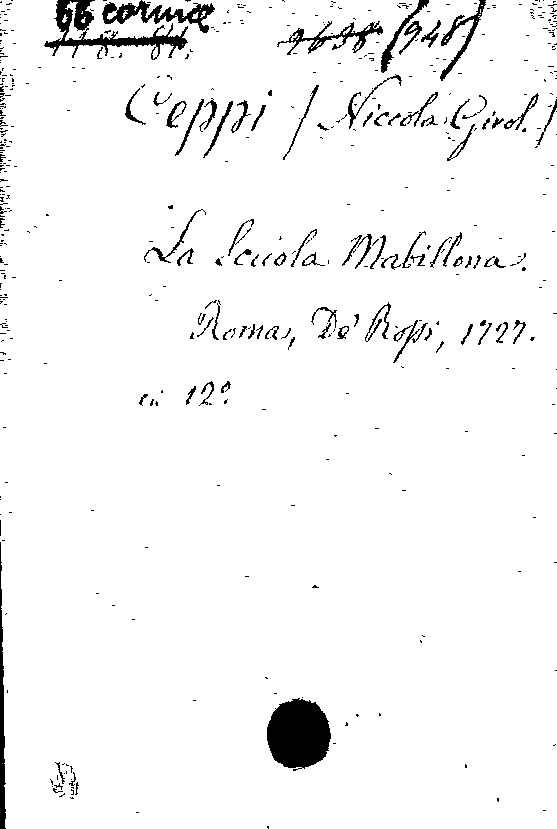 66 cornice
118. 81. 2638 (948)
Ceppi / Niccola Girol. /
La Scuola Mabillona.
Roma, De' Rossi, 1727.
in 12º